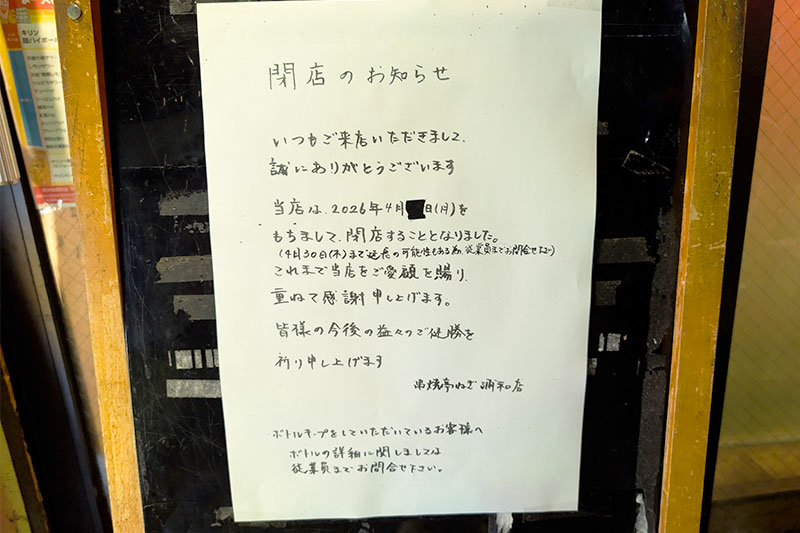 キリン
閉店のお知らせ
いつもご来店いただきまして、
誠にありがとうございます
当店は、2026年4月 日(月)を
もちまして、閉店することとなりました。
(4月30日(木)まで延長の可能性もある為、従業員までお問合せ下さい)
これまで当店をご愛顧を賜り、
重ねて感謝申し上げます。
皆様の今後の益々のご健勝を
祈り申し上げます
串焼亭ねぎ 浦和店
ボトルキープをしていただいているお客様へ
ボトルの詳細に関しましては
従業員までお問合せ下さい。